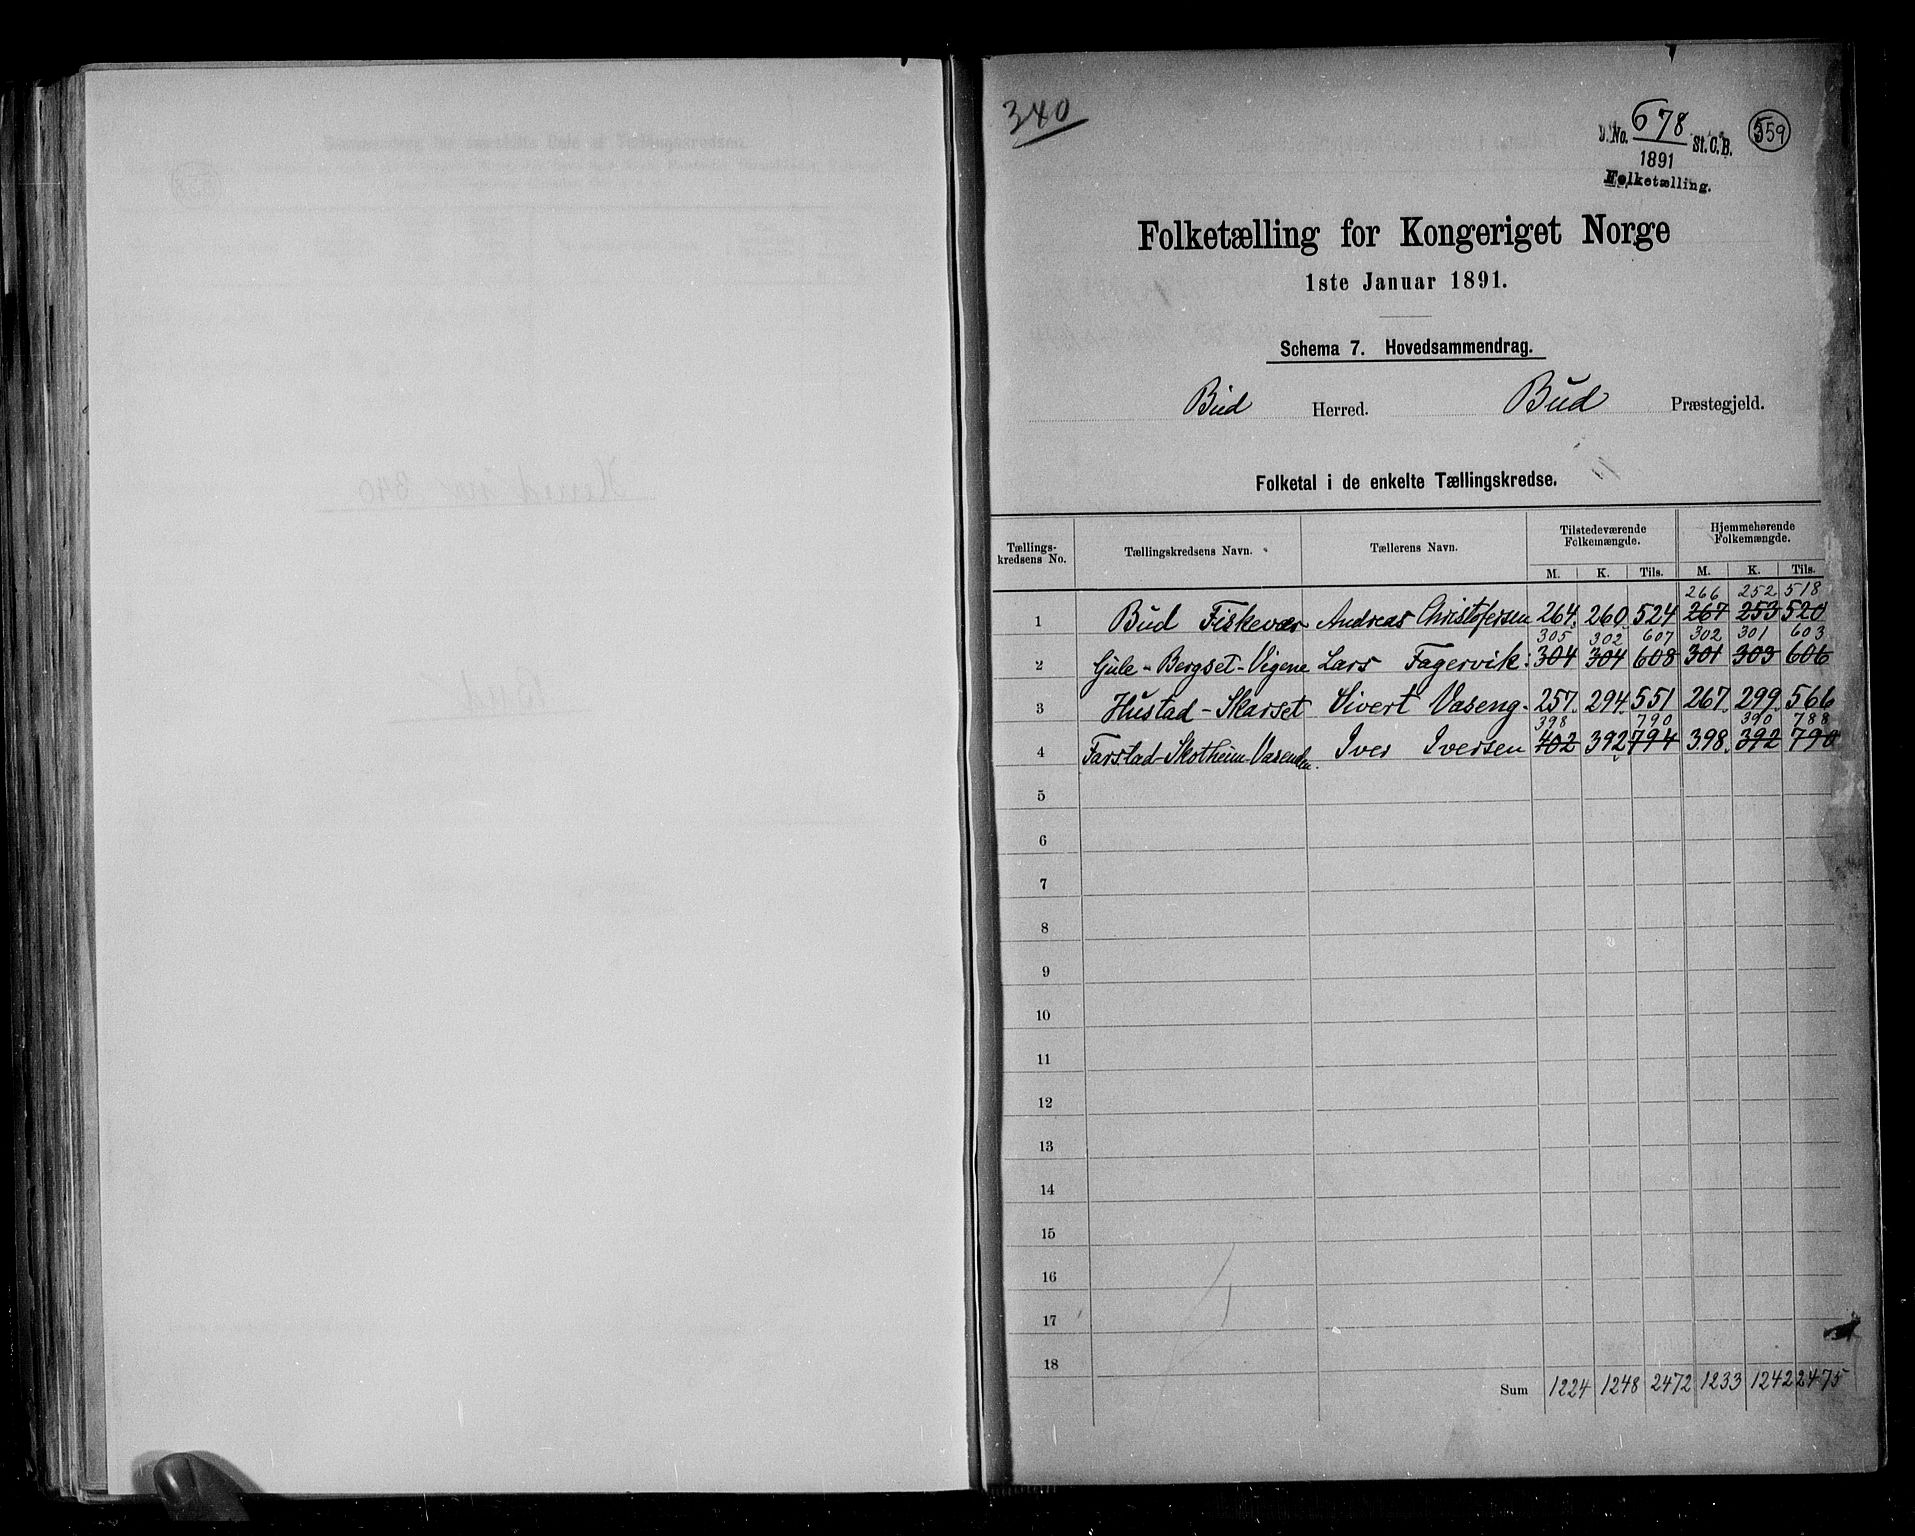 340
J.No. 678 St.C.B. 359
1891
Folketælling.
Folketælling for Kongeriget Norge
1ste Januar 1891.
Schema 7. Hovedsammendrag.
Bud Herred. Bud Præstegjeld.
Folketal i de enkelte Tællingskredse.
Tællings-kredsens No. Tællingskredsens Navn. Tællerens Navn. Tilstedeværende Folkemængde. Hjemmehørende Folkemængde.
M. K. Tils. M. K. Tils.
266 252 518
1 Bud Fiskevær Andreas Christofersen 264 260 524 267 253 520
305 302 607 302 301 603
2 Gule-Bergset-Vigene Lars Fagervik 304 304 608 301 303 606
3 Hustad-Skarset Sivert Vaseng 257 294 551 267 299 566
398 790 390 788
4 Farstad-Skotheim-Vasenden. Iver Iversen 402 392 794 398 392 790
5
6
7
8
9
10
11
12
13
14
15
16
17
18
Sum 1224 1248 2472 1233 1242 2475